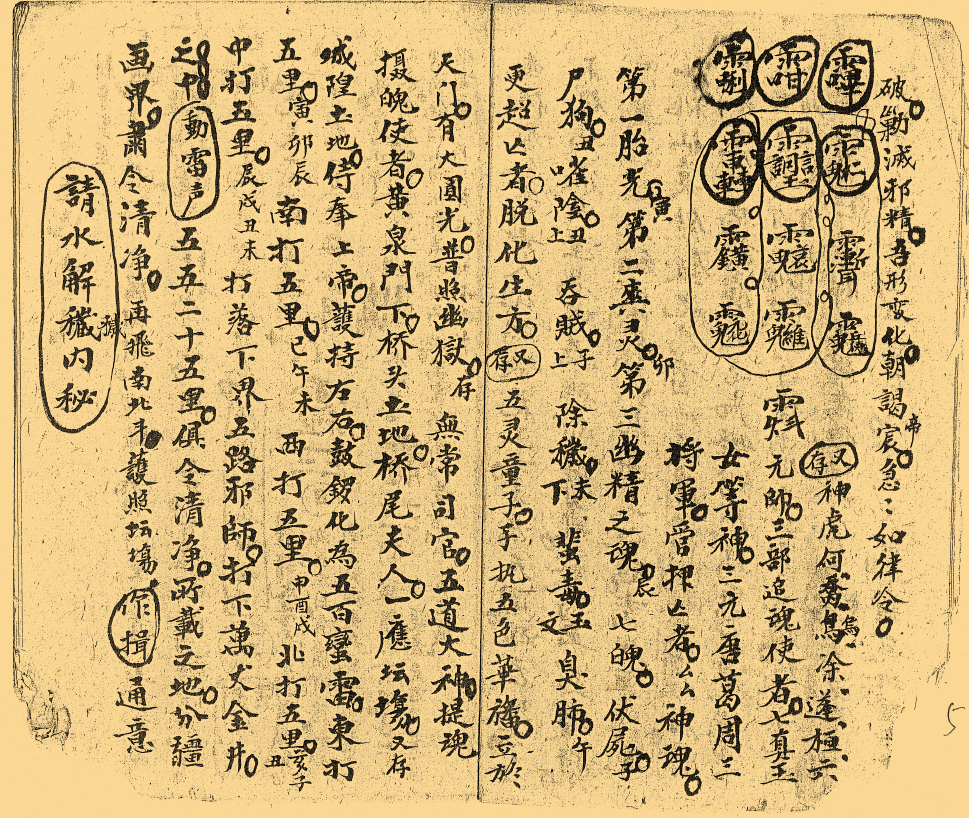 破勦滅邪精吾形变化朝謁宸帝急ミ如律令
又存
神虎何喬鳥余蓬桓六
元帥三部追魂使者七真玉
女等神三元唐葛周三
將軍管押亡者厶厶神魂
第一胎光寅第二爽灵卯第三幽精之魂辰七魄伏屍子
尸狗丑 唯陰丑上 吞賊子上 除穢未下 蜚毒玉文 臭肺午
更超亡者脱化生方又存五灵童子手执五色華旛立於
天门有大圓光普照幽獄存無常司官五道大神提魂
摄魄使者黄泉門下桥头土地桥尾夫人一應坛場又存
城隍土地侍奉上帝護持左右鼓鑼化為五百蠻雷東打
五里寅卯辰南打五里巳午未西打五里申酉戌北打五里亥子丑
中打五里辰戌丑未打落下界五路邪師打下萬丈金井
動雷声五五二十五里俱令清净所載之地分疆
画界肅令清净再飛南北斗護照坛場作揖通意
請水解穢内秘